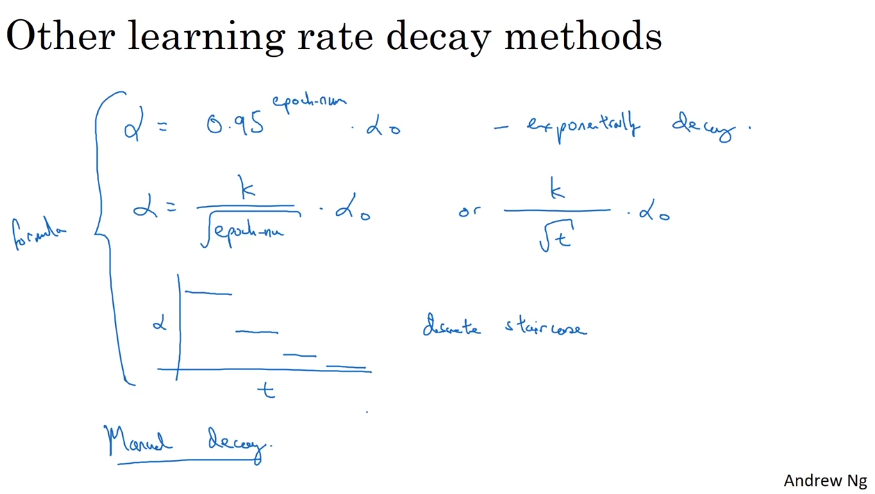 Other learning rate decay methods
α = 0.95^epoch-num · α₀ - exponentially decay.
formula
α = k / √epoch-num · α₀ or k / √t · α₀
α
discrete staircase
t
Manual decay.
Andrew Ng